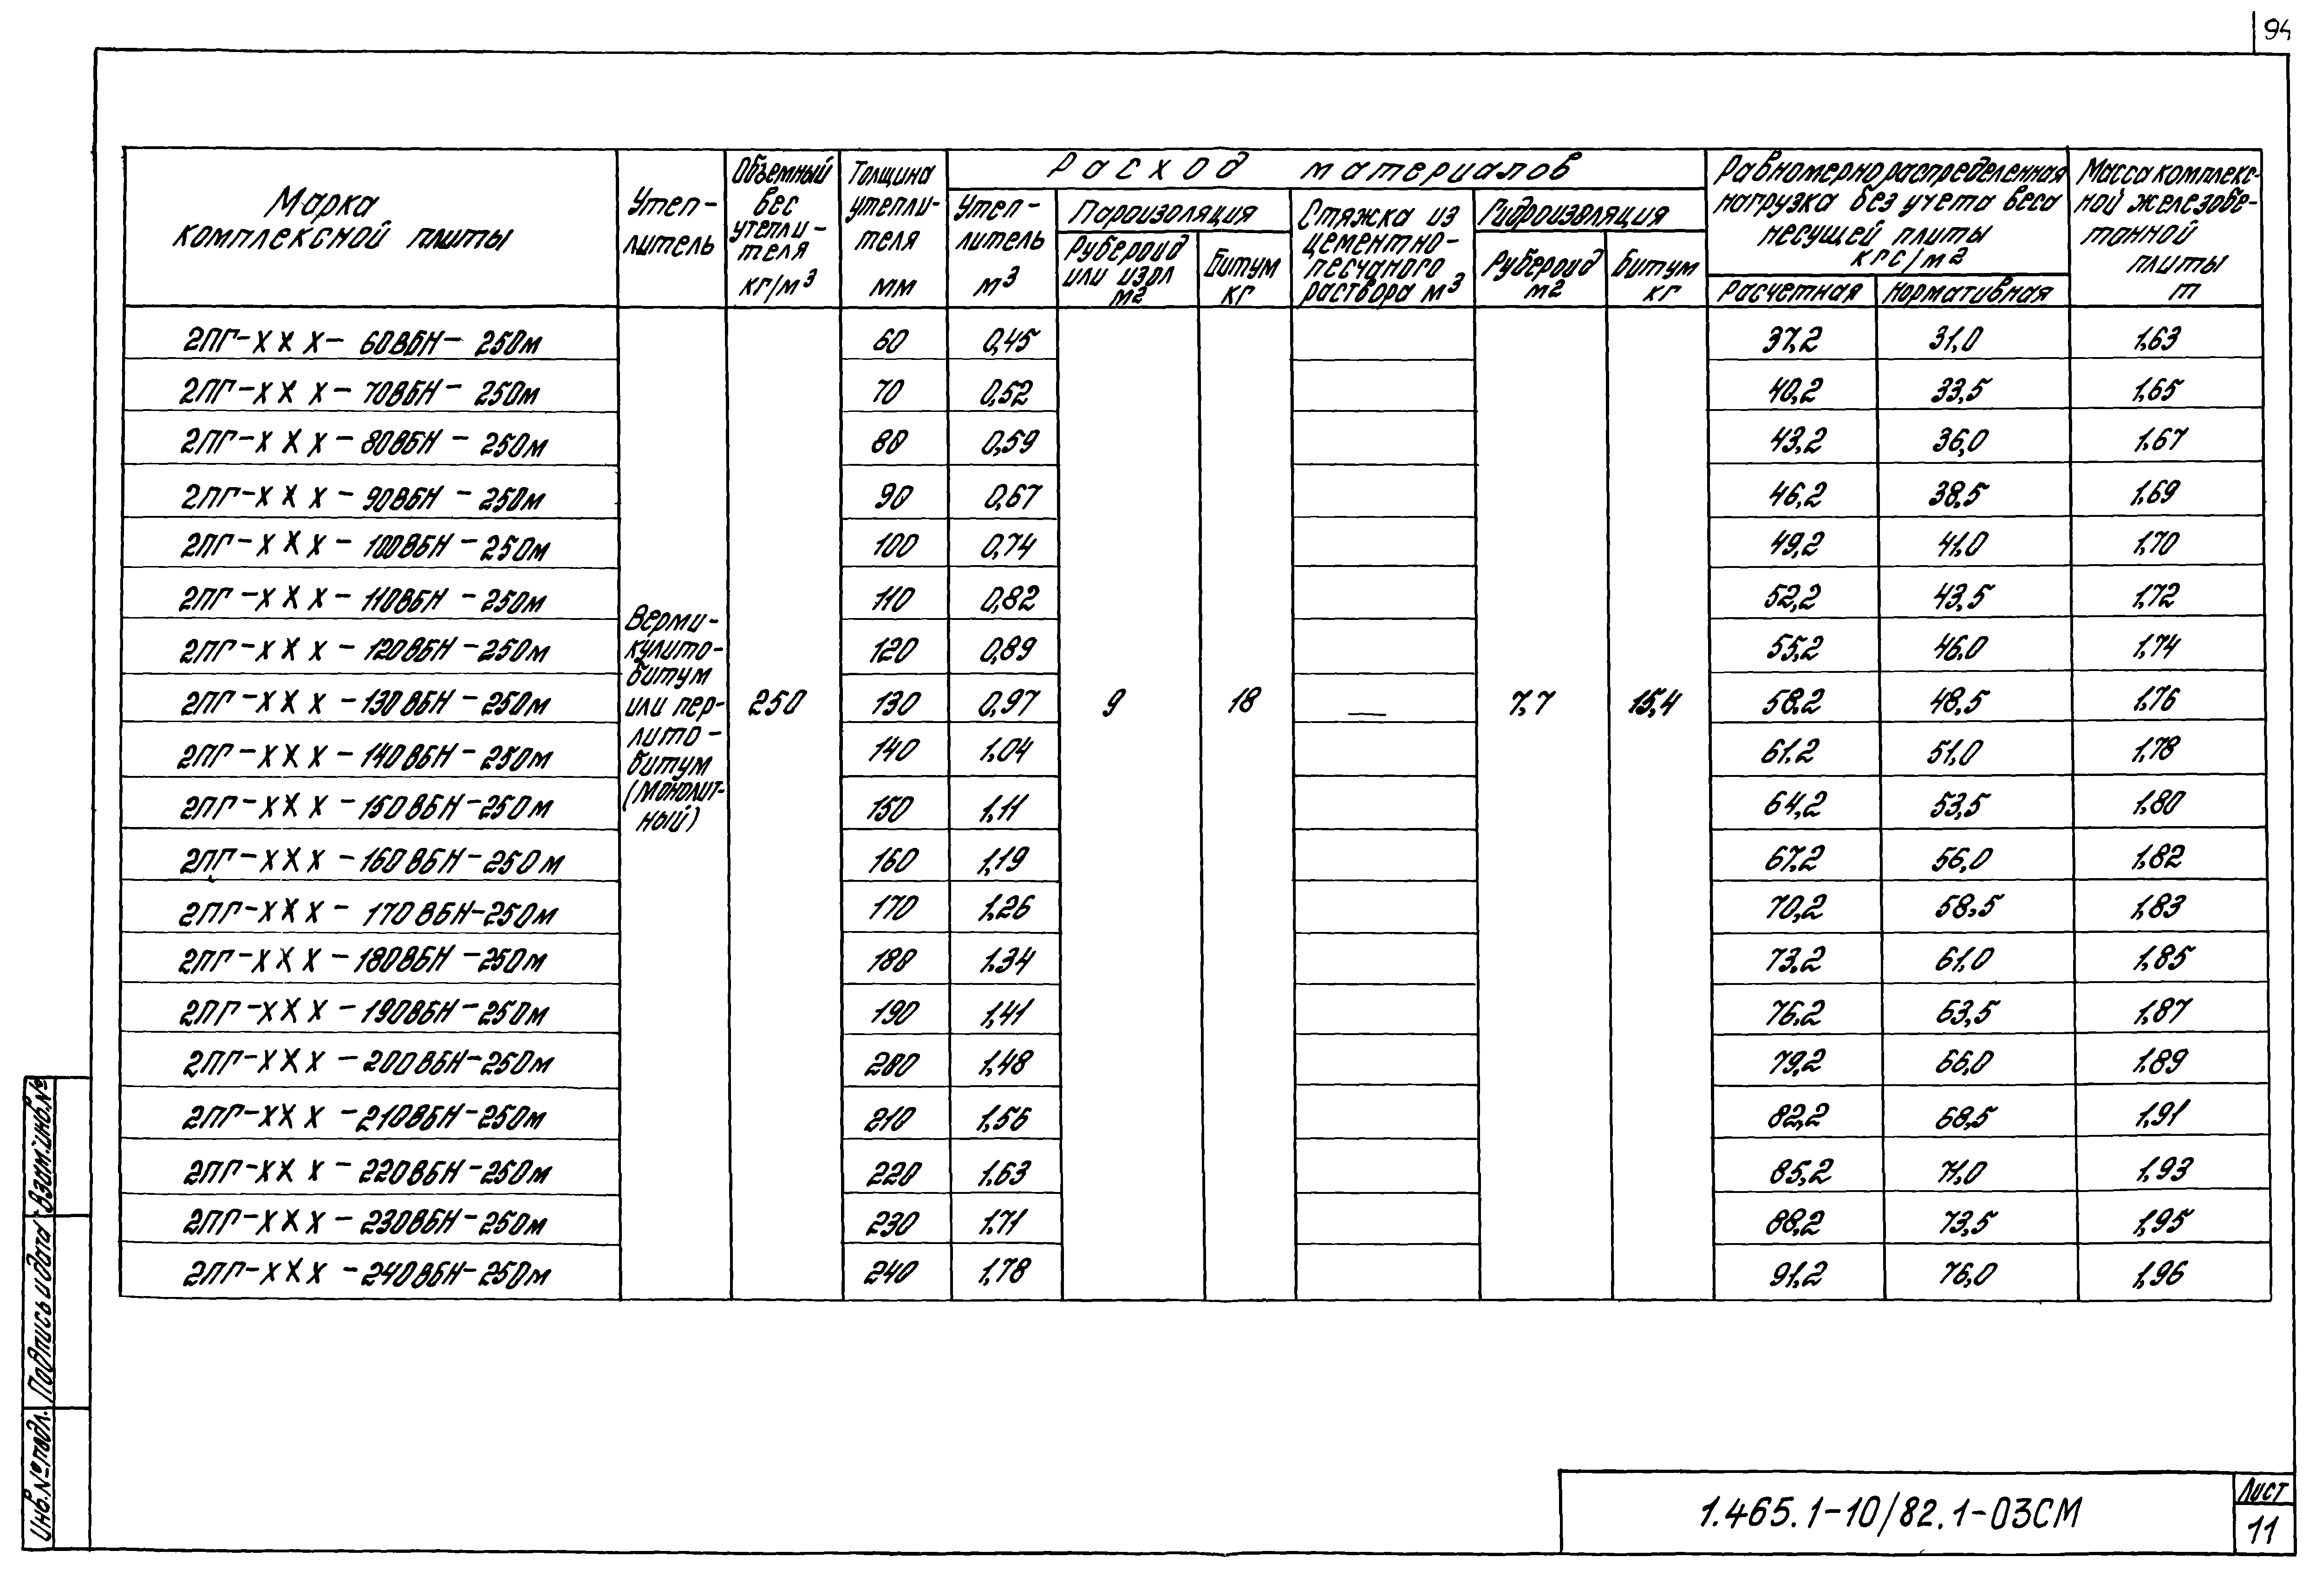 94
Марка
комплексной плиты
Утеп-
литель
Объемный
вес
утепли-
теля
кг/м³
Толщина
утепли-
теля
мм
Расход материалов
Утеп-
литель
м³
Пароизоляция
Рубероид
или изол
м2
Битум
кг
Стяжка из
цементно-
песчаного
раствора м³
Гидроизоляция
Рубероид
м2
Битум
кг
Равномерно распределенная
нагрузка без учета веса
несущей плиты
кгс/м²
Расчетная
Нормативная
Масса комплекс-
ной железобе-
тонной
плиты
т
2ПГ-ХХХ-60ВБН-250м 60 0,45 37,2 31,0 1,63
2ПГ-ХХХ-70ВБН-250м 70 0,52 40,2 33,5 1,65
2ПГ-ХХХ-80ВБН-250м 80 0,59 43,2 36,0 1,67
2ПГ-ХХХ-90ВБН-250м 90 0,67 46,2 38,5 1,69
2ПГ-ХХХ-100ВБН-250м 100 0,74 49,2 41,0 1,70
2ПГ-ХХХ-110ВБН-250м 110 0,82 52,2 43,5 1,72
2ПГ-ХХХ-120ВБН-250м 120 0,89 55,2 46,0 1,74
2ПГ-ХХХ-130ВБН-250м 130 0,97 58,2 48,5 1,76
2ПГ-ХХХ-140ВБН-250м 140 1,04 61,2 51,0 1,78
2ПГ-ХХХ-150ВБН-250м 150 1,11 64,2 53,5 1,80
2ПГ-ХХХ-160ВБН-250м 160 1,19 67,2 56,0 1,82
2ПГ-ХХХ-170ВБН-250м 170 1,26 70,2 58,5 1,83
2ПГ-ХХХ-180ВБН-250м 180 1,34 73,2 61,0 1,85
2ПГ-ХХХ-190ВБН-250м 190 1,41 76,2 63,5 1,87
2ПГ-ХХХ-200ВБН-250м 200 1,48 79,2 66,0 1,89
2ПГ-ХХХ-210ВБН-250м 210 1,56 82,2 68,5 1,91
2ПГ-ХХХ-220ВБН-250м 220 1,63 85,2 71,0 1,93
2ПГ-ХХХ-230ВБН-250м 230 1,71 88,2 73,5 1,95
2ПГ-ХХХ-240ВБН-250м 240 1,78 91,2 76,0 1,96
Верми-
кулито-
битум
или пер-
лито-
битум
(Монолит-
ный)
250
9
18
—
7,7
15,4
Взам.инв.№
Подпись и дата
Инв.№подл.
1.465.1-10/82.1-03СМ
Лист
11